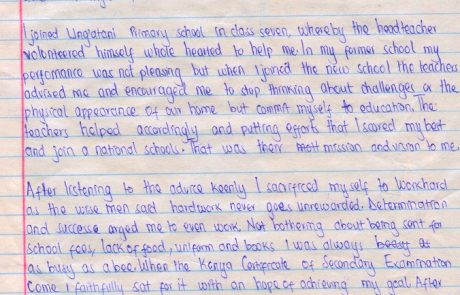 I joined Ungatani Primary school in class seven, whereby the headteacher
volunteered himself whole hearted to help me. In my former school my
performance was not pleasing but when I joined the new school the teachers
advised me and encouraged me to stop thinking about challenges or the
physical appearance of our home but commit myself to education. The
teachers helped accordingly and putting efforts that I scored my best
and join a national schools. That was their mission and vision to me.
After listening to the advice keenly I sacrificed myself to workhard
as the wise men said hardwork never goes unrewarded. Determination
and success urged me to even work. Not bothering about being sent for
school fees, lack of food, uniform and books I was always
as busy as a bee. When the Kenya Certificate of Secondary Examination
Come I faithfully sat for it with an hope of achieving my goal. After